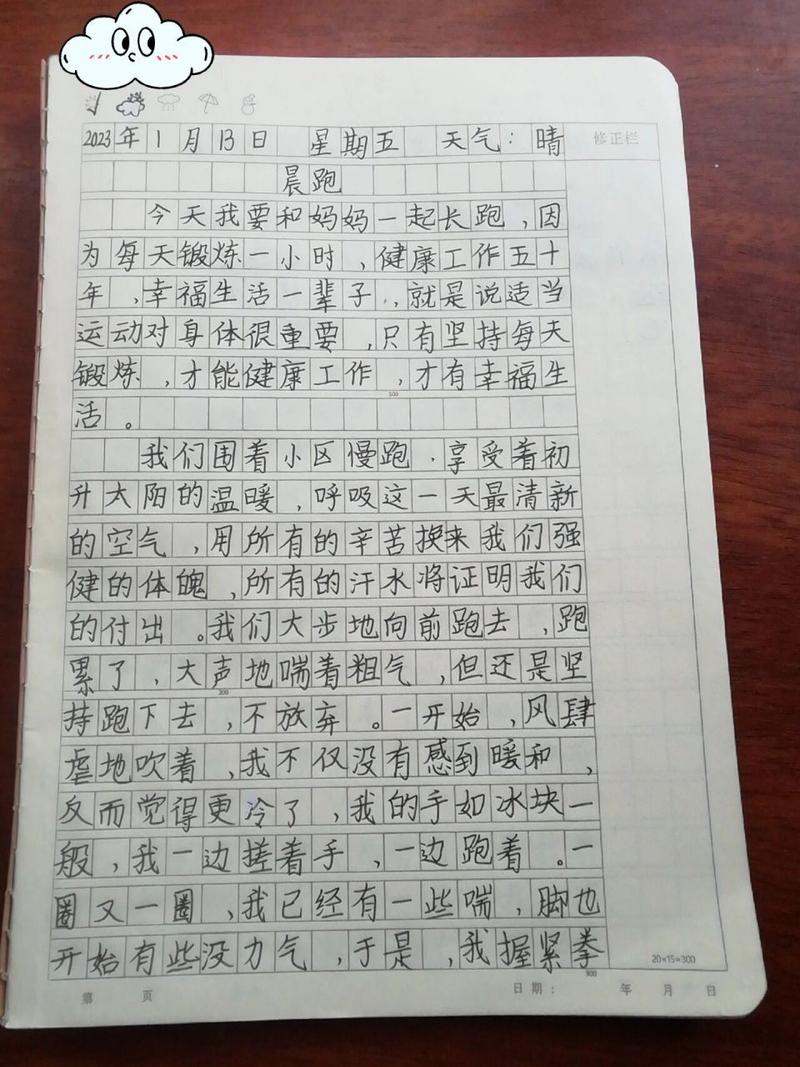 2023年1月13日 星期五 天气：晴 修正栏
晨跑
今天我要和妈妈一起长跑，因
为每天锻炼一小时，健康工作五十
年，幸福生活一辈子，就是说适当
运动对身体很重要，只有坚持每天
锻炼，才能健康工作，才有幸福生
100
活。
我们围着小区慢跑，享受着初
升太阳的温暖，呼吸这一天最清新
的空气，用所有的辛苦换来我们强
健的体魄，所有的汗水将证明我们
的付出。我们大步地向前跑去，跑
累了，大声地喘着粗气，但还是坚
200
持跑下去，不放弃。一开始，风肆
虐地吹着，我不仅没有感到暖和，
反而觉得更冷了，我的手如冰块一
般，我一边搓着手，一边跑着。一
圈又一圈，我已经有一些喘，脚也
开始有些没力气，于是，我握紧拳
20×15=300
300
第 页 日期： 年 月 日